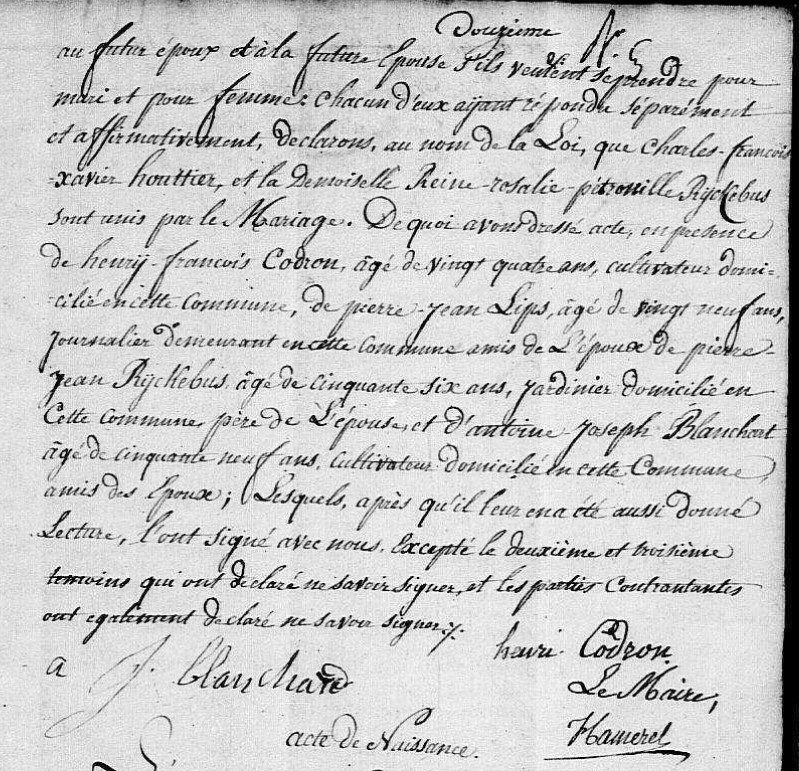 Douzième
au futur époux et à la future Epouse s'ils veulent se prendre pour
mari et pour femme: chacun d'eux aÿant répondu séparément
et affirmativement, declarons, au nom de la Loi, que Charles-francois
-xavier houttier, et la Demoiselle Reine-rosalie-pétronille Rÿckebus
sont unis par le Mariage. De quoi avons dressé acte, en presence
de henrÿ-francois Codron, âgé de vingt quatre ans, cultivateur domi-
-cilié en cette Commune, de pierre-Jean Lips, âgé de vingt neuf ans,
Journalier demeurant en cette commune amis de L'époux de pierre-
Jean Rÿckebus, âgé de cinquante six ans, Jardinier domicilié en
Cette commune, père de L'épouse, et d'antoine Joseph Blanchart
âgé de cinquante neuf ans, cultivateur domicilié en cette Commune,
amis des Epoux; Lesquels, après qu'il leur en a été aussi donné
Lecture, l'ont signé avec nous, Excepté le deuxième et troisième
temoins qui ont declaré ne savoir signer, et les parties Contractantes
ont egalement declaré ne savoir signer ;/.
henri Codron
a J. blanchard
Le Maire,
Hamerel
acte de Naissance.